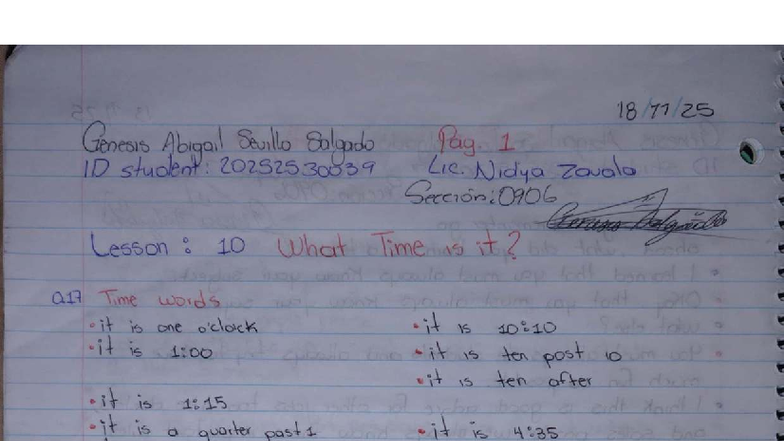 18/11/25
Genesis Abigail Sevilla Salgado Pág. 1
ID student: 20252530039 Lic. Nidya Zavala
Sección: 0906
Lesson: 10 What Time is it?
a.17 Time words
• it is one o'clock
• it is 1:00
• it is 1:15
• it is a quarter past 1
• it is 10:10
• it is ten past 10
• it is ten after
• it is 4:35